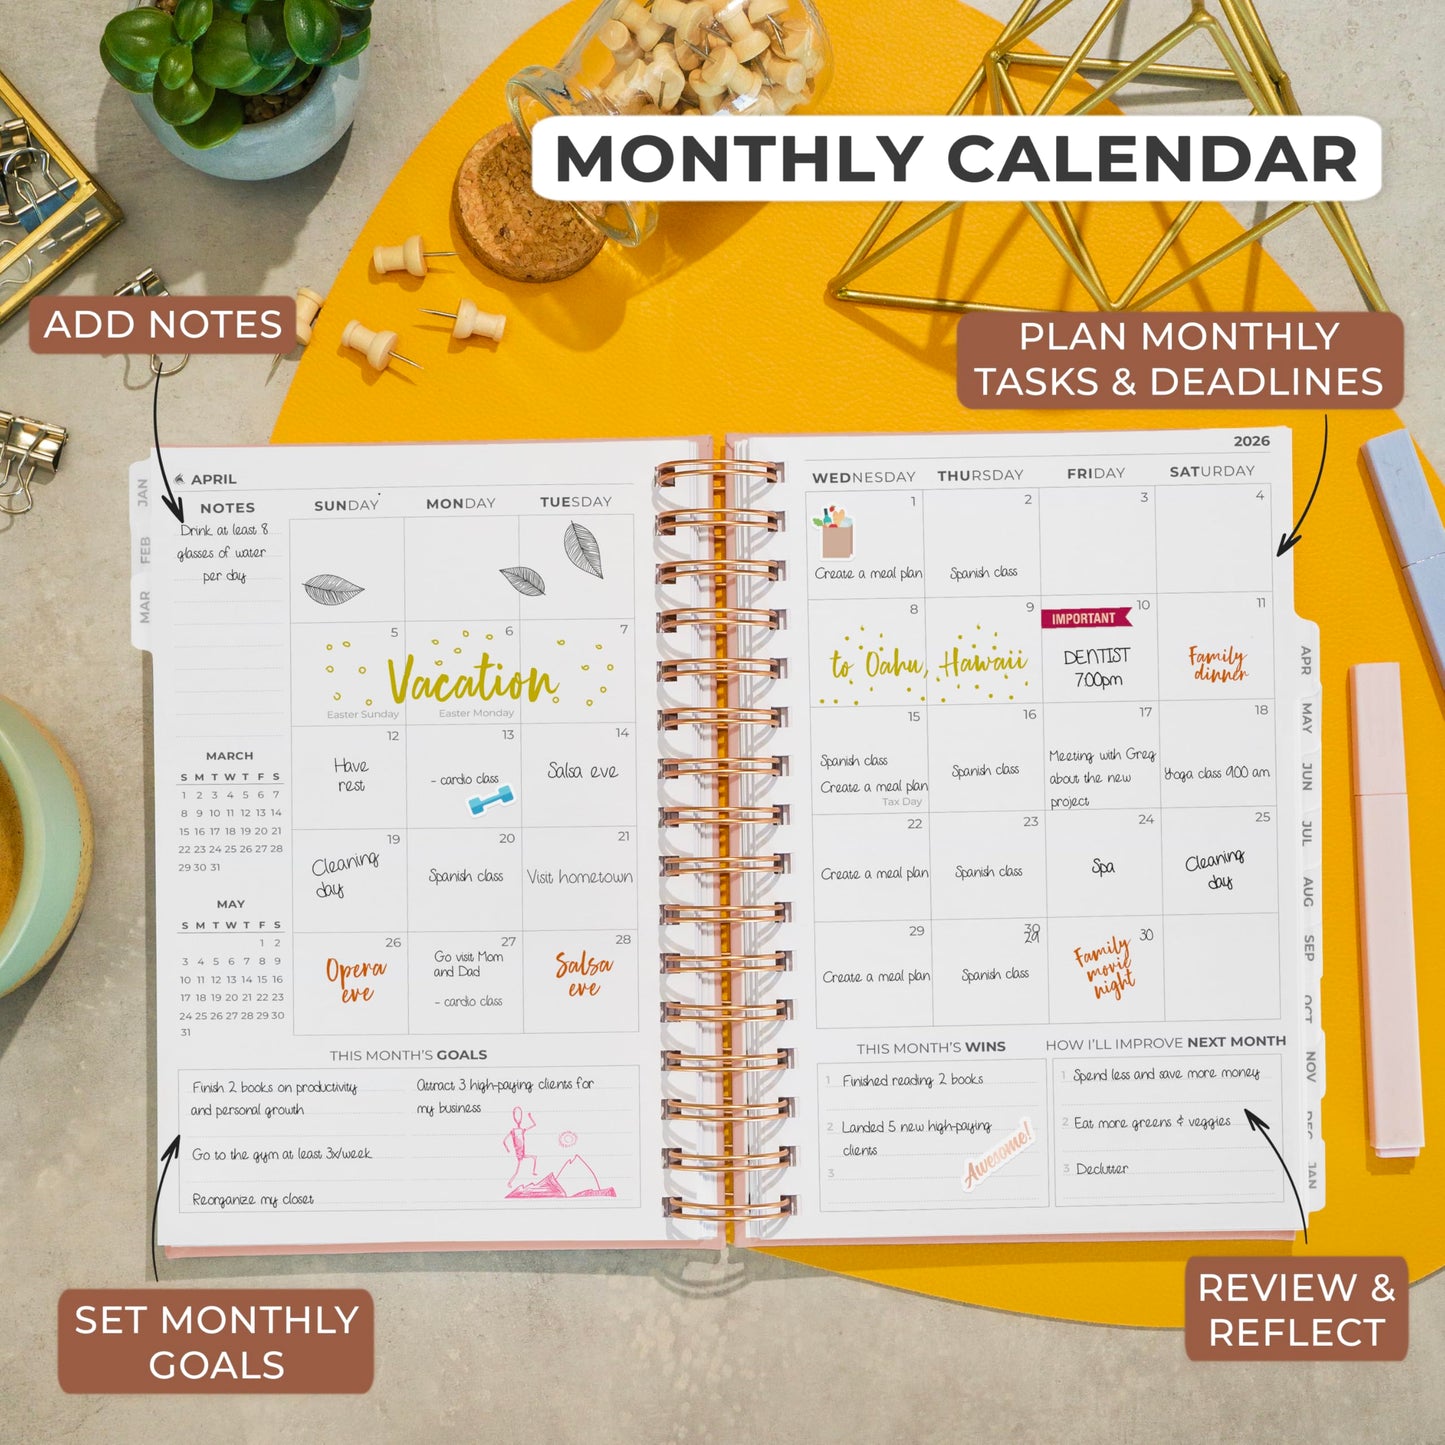 MONTHLY CALENDAR
ADD NOTES
PLAN MONTHLY
TASKS & DEADLINES
APRIL
2026
NOTES
SUNDAY
MONDAY
TUESDAY
WEDNESDAY
THURSDAY
FRIDAY
SATURDAY
JAN
FEB
MAR
Drink at least 8
glasses of water
per day
1
Create a meal plan
2
Spanish class
3
4
5
6
7
Vacation
Easter Sunday
Easter Monday
8
9
to Oahu, Hawaii
10
IMPORTANT
DENTIST
7:00pm
11
Family
dinner
12
Have
rest
13
- cardio class
14
Salsa eve
15
Spanish class
Create a meal plan
Tax Day
16
Spanish class
17
Meeting with Greg
about the new
project
18
Yoga class 9:00 am
19
Cleaning
day
20
Spanish class
21
Visit hometown
22
Create a meal plan
23
Spanish class
24
Spa
25
Cleaning
day
26
Opera
eve
27
Go visit Mom
and Dad
- cardio class
28
Salsa
eve
29
Create a meal plan
30
29
Spanish class
30
Family
movie
night
MARCH
S M T W T F S
1 2 3 4 5 6 7
8 9 10 11 12 13 14
15 16 17 18 19 20 21
22 23 24 25 26 27 28
29 30 31
MAY
S M T W T F S
1 2
3 4 5 6 7 8 9
10 11 12 13 14 15 16
17 18 19 20 21 22 23
24 25 26 27 28 29 30
31
APR
MAY
JUN
JUL
AUG
SEP
OCT
NOV
DEC
JAN
THIS MONTH'S GOALS
Finish 2 books on productivity
and personal growth
Go to the gym at least 3x/week
Reorganize my closet
Attract 3 high-paying clients for
my business
THIS MONTH'S WINS
1 Finished reading 2 books
2 Landed 5 new high-paying
clients
3
Awesome!
HOW I'LL IMPROVE NEXT MONTH
1 Spend less and save more money
2 Eat more greens & veggies
3 Declutter
SET MONTHLY
GOALS
REVIEW &
REFLECT